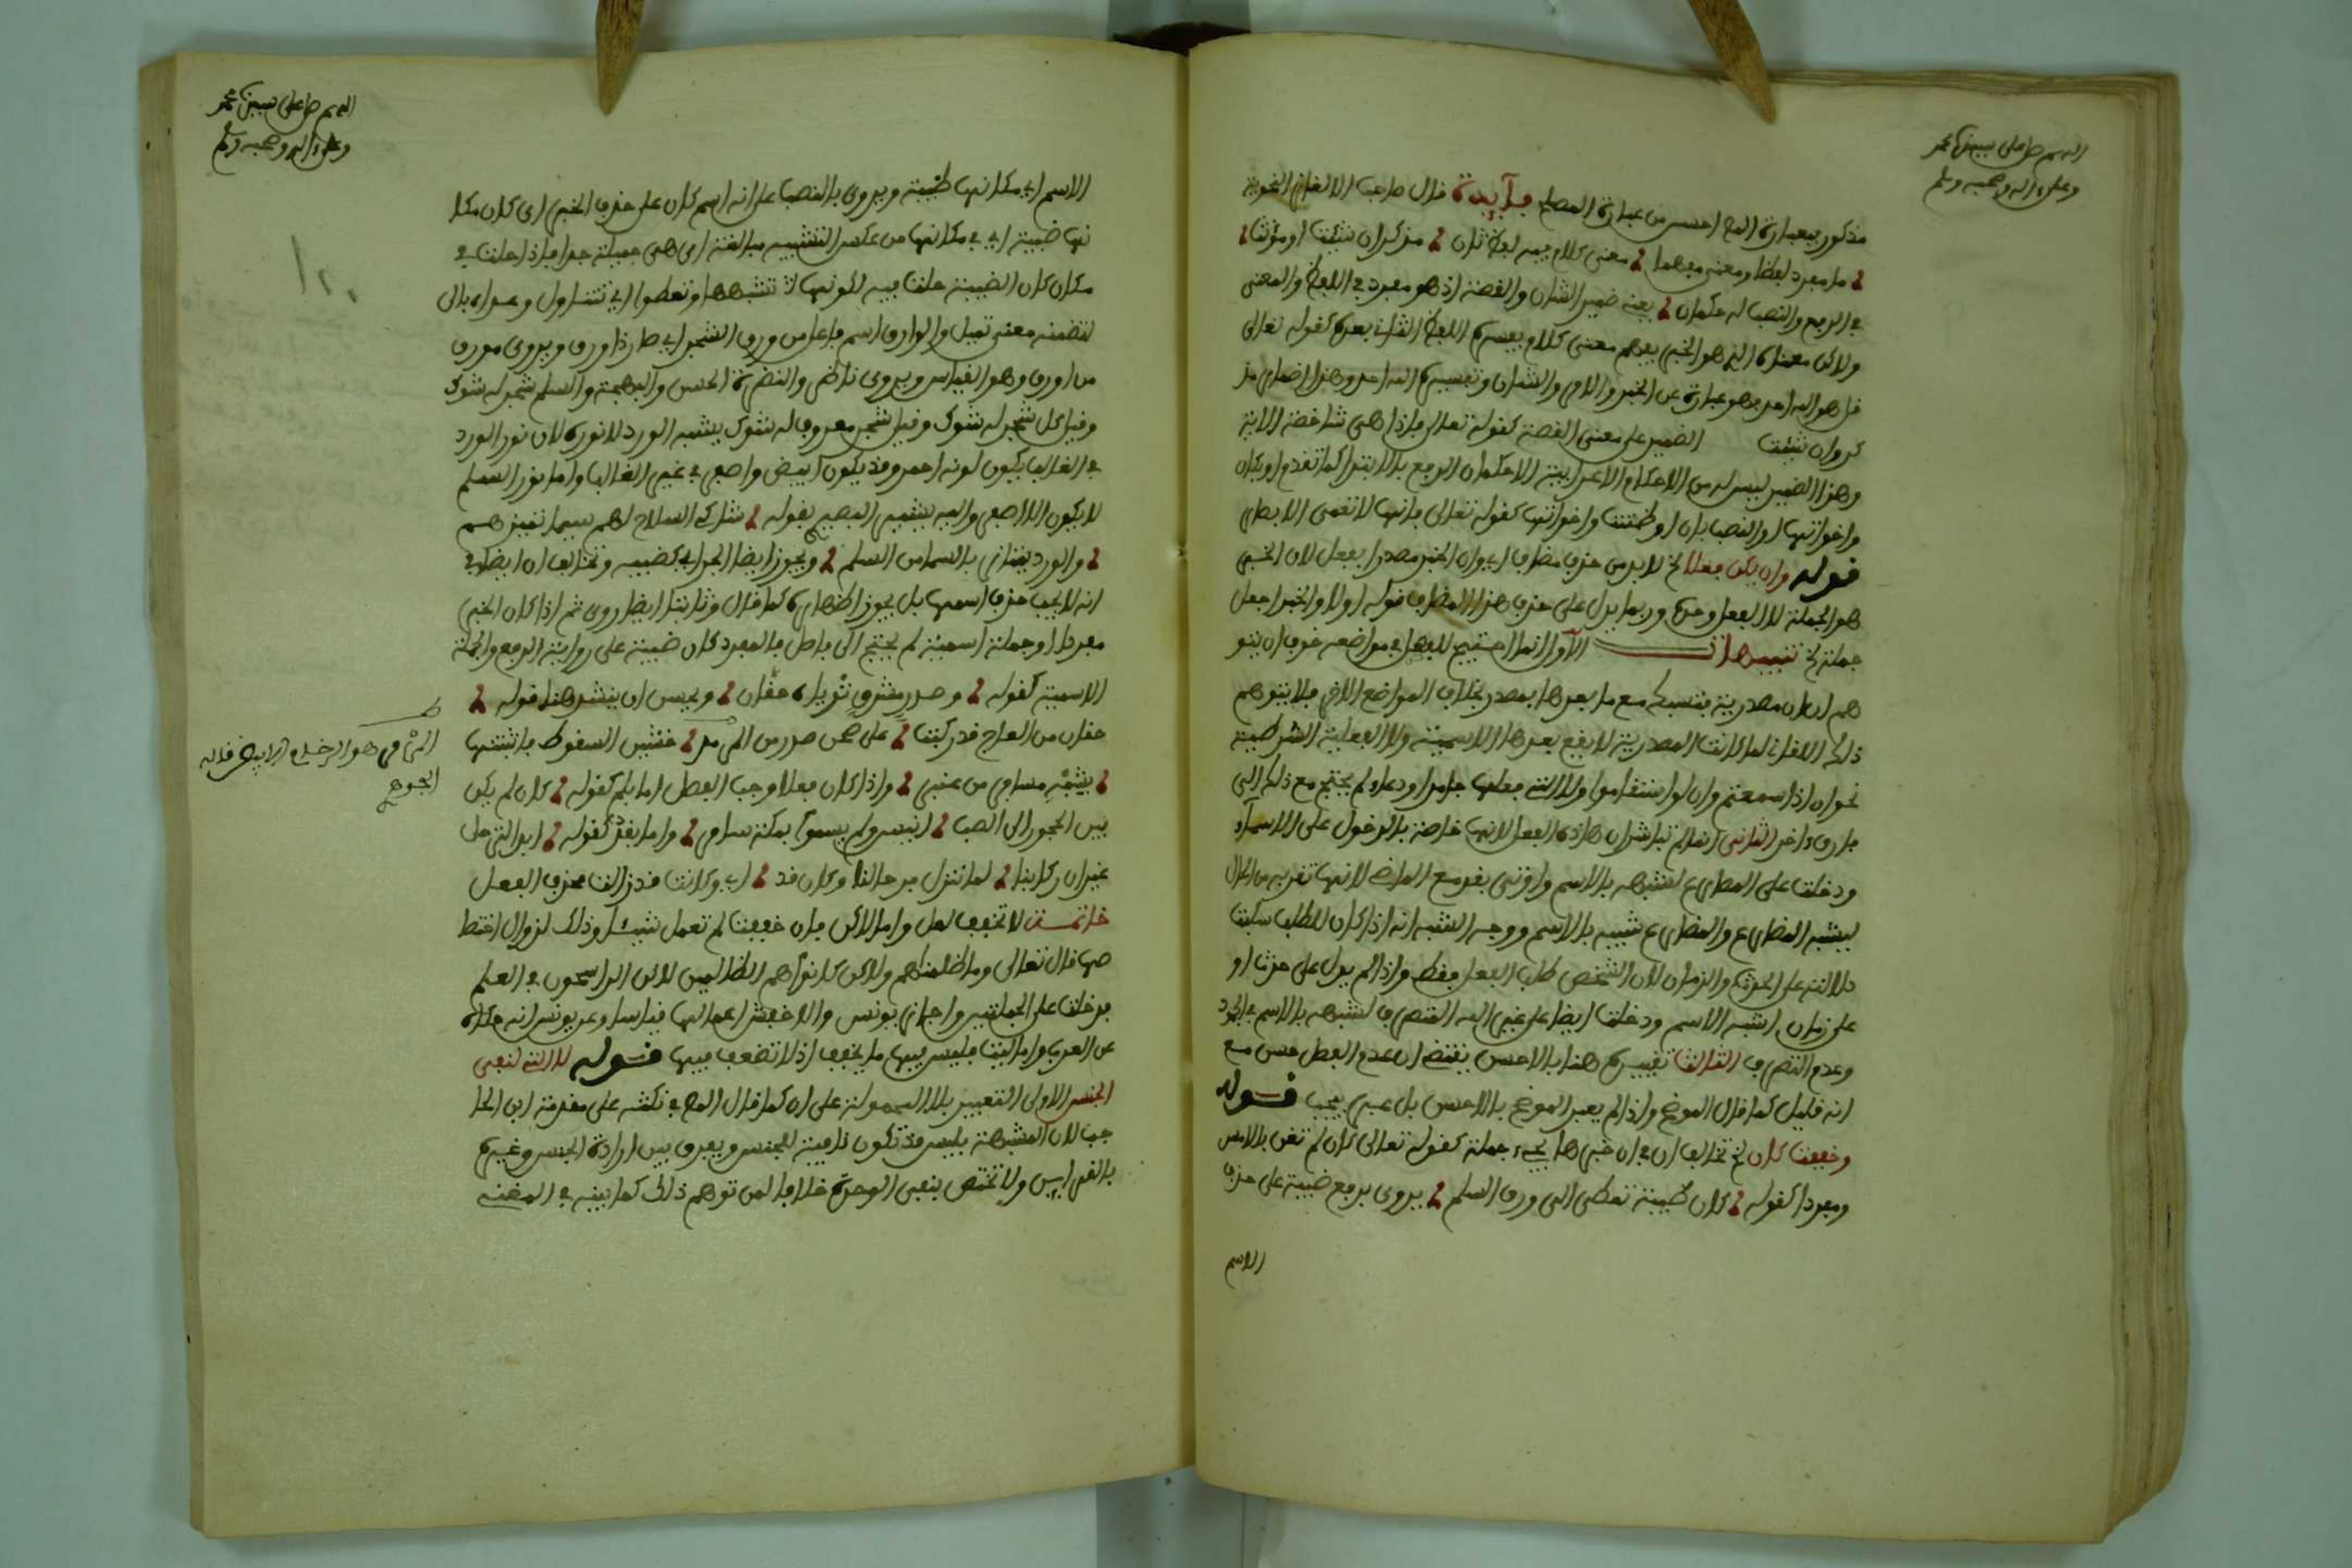 اللهم صل على سيدنا محمد
وعلى ءاله وصحبه وسلم
مذكور بعبارة احسن من عبارة المصنف فآئدة قال صاحب الالغاز النحوية
ما مفرد لفظا ومعنى يفهما معنى كلام فيه لفظ ثان مذكران شئت او مؤنثا
في الرفع والنصب له حكمان يعني ضمير الشان والقصة اذ هو مفرد في اللفظ والمعنى
ولاكن معناه الذي هو الخبر يفهم معنى كلام يفسره اللفظ الثاني بعده كقوله تعالى
قل هو الله احد فهو عبارة عن الخبر والامر والشان وتفسيره الله احد وهذا اضمار مذ
كر وان شئت الضمير على معنى القصة كقوله تعالى فاذا هي شاخصة الاية
وهذا الضمير ليس له من الاحكام الاعرابية الا حكمان الرفع بالابتدا كما تقدم او بكان
واخواتها والنصب بان او ظننت واخواتها كقوله تعالى فانها لا تعمى الابصار
قوله وان يكن فعلا الخ لا بد من حذف مضاف اي وان يكن الخبر مصدرا بفعل لان الخبر
هو الجملة لا الفعل وحده وربما يدل على حذف هذا المضاف قوله اولا والخبر اجعل
جملة الخ تنبيهات الاول انما احتيج للفصل في مواضعه خوف ان يتو
هم ان ان مصدرية فتنسبك مع ما بعدها بمصدر بخلاف المواضع الاخر فلا يتوهم
ذلك الاقل لما كانت المصدرية لا يقع بعدها الاسمية ولا الفعلية الشرطية
نحو ان اذا سمعتم وان لو استقاموا ولا التي فعلها جامد او دعاء لم يحتج مع ذلك الى
فارق ءاخر الثاني انما لم تباشر ان هاذه الفعل لانها خاصة بالدخول على الاسمآء
ودخلت على المضارع لشبهه بالاسم واوتي بقد مع الماضي لانها تقربه من الحال
ليشبه المضارع والمضارع شبيه بالاسم ووجه الشبه انه اذا كان للطلب سكنت
دلالته على الحدث والزمان لان الشخص طلب الفعل فقط واذا لم يدل على حدث او
على زمان اشبه الاسم ودخلت ايضا على غير المتصرف لشبهه بالاسم في الجمود
وعدم التصرف الثالث تعبيره هنا بالاحسن يقتضي ان عدم الفصل حسن مع
انه قليل كما قال الموضح واذا لم يعبر الموضح بالاحسن بل عبر بيجب قوله
وخففت كان الخ تخالف ان في ان خبرها يجيء جملة كقوله تعالى كان لم تغن بالامس
ومفردا كقوله كان ظبية تعطوا الى وارق السلم يروى برفع ظبية على حذف
الاسم
اللهم صل على سيدنا محمد
وعلى ءاله وصحبه وسلم
الاسم اي كانها ظبية ويروى بالنصب على انه اسم كان على حذف الخبر اي كان مكا
نها ظبية اي في مكانها من عكس التشبيه مبالغة اي هي جميلة جدا فاذا حلت في
مكان كان الظبية حلت فيه لكونها تشبهها وتعطوا اي تتناول وعداه بالى
لتضمنه معنى تميل والوارق اسم فاعل من ورق الشجر اي صار ذا ورق ويروى مورق
من اورق وهو القياس ويروى ناضر والنضرة الحسن والبهجة والسلم شجر له شوك
وقيل كل شجر له شوك وقيل شجر معروف له شوك يشبه الورد لا نوره لان نور الورد
في الغالب يكون لونه احمر وقد يكون ابيض واصفر في غير الغالب واما نور السلم
لا يكون الا اصفر واليه يشير البصير بقوله شاركي السلاح لهم سيما تميزهم
والورد يمتاز بالسما من السلم ويجوز ايضا الجر اي كظبية وتخالف ان ايضا في
انه لا يجب حذف اسمها بل يجوز اظهاره كما قال وثابتا ايضا روي ثم اذا كان الخبر
مفردا او جملة اسمية لم يحتج الى فاصل فالمفرد كان ظبية على رواية الرفع والجملة
الاسمية كقوله وصدر مشرق ثدياه حقان ويحسن ان ينشد هنا قوله
حقان من العاج قد ركبتا على صحن صدر من المرمر خشين السقوط فاثبتتها
بشبه مسامير من عنبر واذا كان فعلا وجب الفصل اما بلم كقوله كان لم يكن
بين الحجون الى الصفا انيس ولم يسمر بمكة سامر واما بقد كقوله ازف الترحل
غير ان ركابنا لما تنزل برحالنا وكان قد اي وكانت قد زالت فحذف الفعل
خاتمـــة لا تخفف لعل واما لاكن فان خففت لم تعمل شيئا وذلك لزوال اختصا
صها قال تعالى وما ظلمناهم ولاكن كانوا هم الظالمين لاكن الراسخون في العلم
فدخلت على الجملتين واجاز يونس والاخفش اعمالها قياسا وعن يونس انه حكاه
عن العرب واما ليت فليس فيها ما يخفف اذ لا تضعيف فيها قوله لا التي لنفي
الجنس الاولى التعبير بلا المحمولة على ان كما قال المص في نكته على مقدمة ابن الحا
جب لان المشبهة بليس قد تكون نافية للجنس ويفرق بين ارادة الجنس وغيره
بالقراين ولا تختص بنفي الوحدة خلافا لمن توهم ذلك كما بينه في المغني
المرمر هو الرخام الابيض قاله
الجوهري